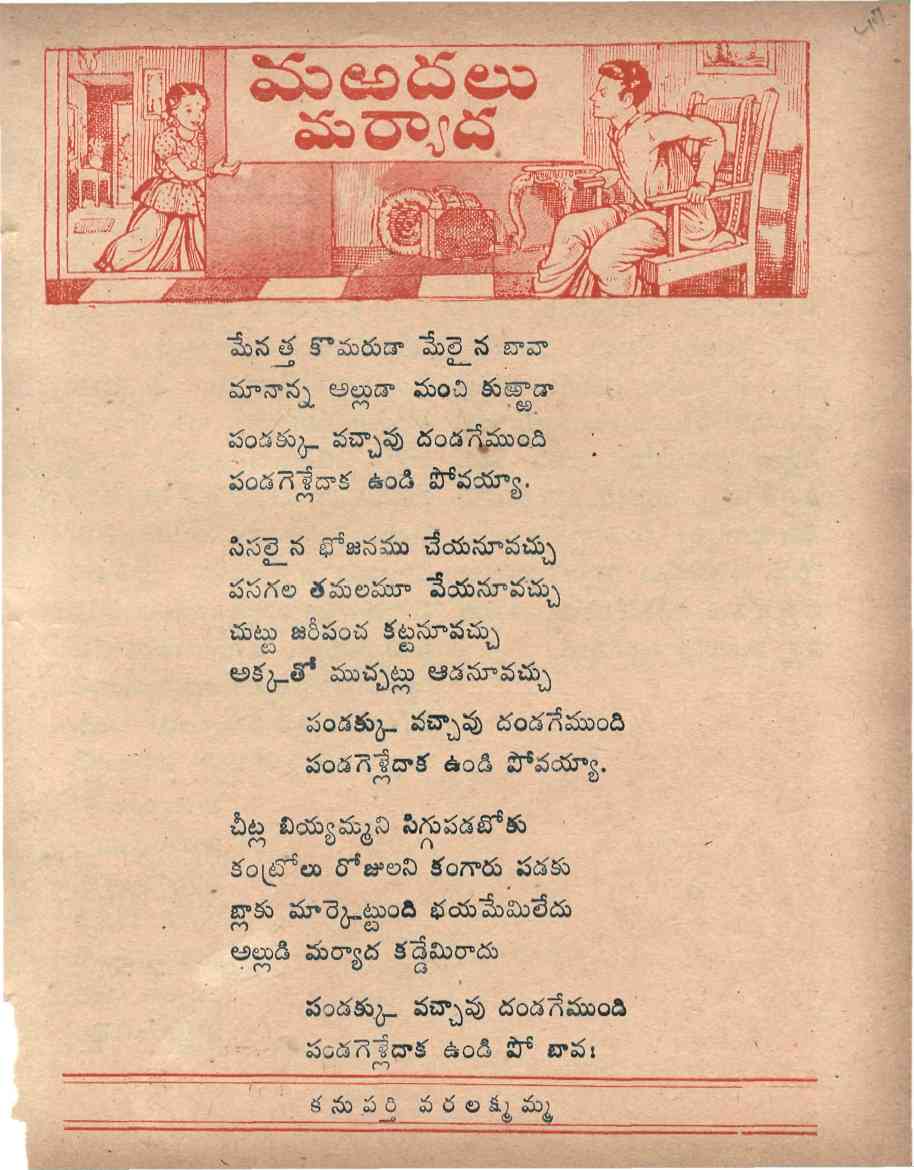 మఱదలు
మర్యాద
మేనత్త కొమరుడా మేలైన బావా
మానాన్న అల్లుడా మంచి కుఱ్ఱాడా
పండక్కు వచ్చావు దండగేముంది
పండగెళ్లేదాక ఉండి పోవయ్యా.
సిసలైన భోజనము చేయనూవచ్చు
పసగల తమలమూ వేయనూవచ్చు
చుట్టు జరీపంచ కట్టనూవచ్చు
అక్కతో ముచ్చట్లు ఆడనూవచ్చు
పండక్కు వచ్చావు దండగేముంది
పండగెళ్లేదాక ఉండి పోవయ్యా.
చీట్ల బియ్యమ్మని సిగ్గుపడబోకు
కంట్రోలు రోజులని కంగారు పడకు
బ్లాకు మార్కెట్టుంది భయమేమిలేదు
అల్లుడి మర్యాద కడ్డేమిరాదు
పండక్కు వచ్చావు దండగేముంది
పండగెళ్లేదాక ఉండి పో బావ!
కనుపర్తి వరలక్ష్మమ్మ